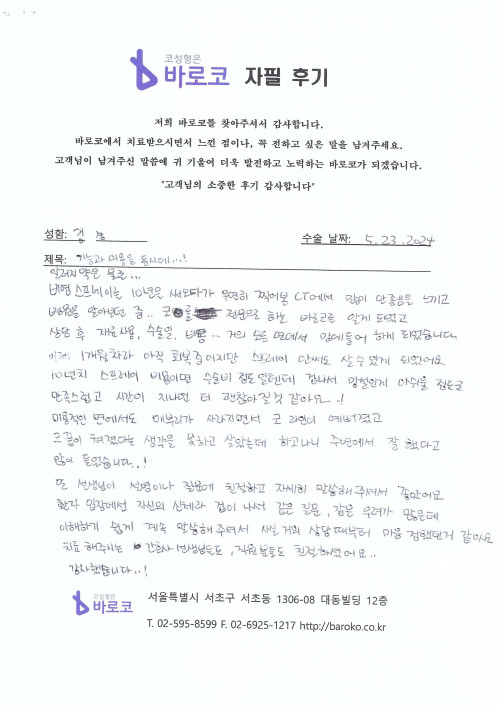 코성형은
바로코 자필 후기
저희 바로코를 찾아주셔서 감사합니다.
바로코에서 치료받으시면서 느낀 점이나, 꼭 전하고 싶은 말을 남겨주세요.
고객님이 남겨주신 말씀에 귀 기울여 더욱 발전하고 노력하는 바로코가 되겠습니다.
"고객님의 소중한 후기 감사합니다"
성함:
수술 날짜: 5.23.2024
제목: 기능과 미용을 동시에...!
알러지약은 물론...
비염스프레이를 10년은 써오다가 우연히 찍어본 CT에서 많이 안좋음을 느끼고
병원을 알아보던 중.. 코 을 전문으로 하는 바로코를 알게 되었고
상담 후 재료사용, 수술일, 비용... 거의 모든 면에서 맘에들어 하게 되었습니다.
이제 1개월차라 아직 회복중이지만 스프레이 안써도 살수있게 되었어요
10년치 스프레이 비용이면 수술비 정도 일텐데 겁나서 망설인게 아쉬울 정도로
만족스럽고 시간이 지나면 더 괜찮아질것 같아요..!
미용적인 면에서도 매부리가 사라지면서 코 라인이 예뻐졌고
코끝이 쳐졌다는 생각을 못하고 살았는데 하고나니 주변에서 잘 했다고
많이 들었습니다..!
또 선생님이 설명이나 질문에 친절하고 자세히 말씀해주셔서 좋았어요
환자 입장에선 자신의 신체라 겁이 나서 같은 질문, 같은 우려가 많은데
이해하기 쉽게 계속 말씀해주셔서 사실 거의 상담때부터 마음 정했던거 같아요
치료해주시는 간호사선생님들도, 직원분들도 친절하셨어요..
감사했습니다..!
코성형은
바로코
서울특별시 서초구 서초동 1306-08 대동빌딩 12층
T. 02-595-8599 F. 02-6925-1217 http://baroko.co.kr